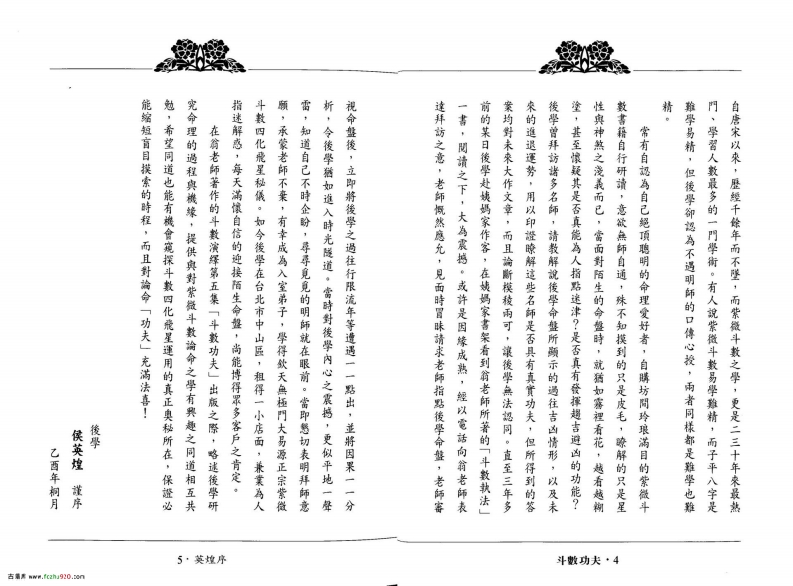 自唐宋以來，歷經千餘年而不墜，而紫微斗數之學，更是二三十年來最熱
門、學習人數最多的一門學術。有人說紫微斗數易學難精，而子平八字是
難學易精，但後學卻認為不遇明師的口傳心授，兩者同樣都是難學也難
精。
常有自認為自己絕頂聰明的命理愛好者，自購坊間玲琅滿目的紫微斗
數書籍自行研讀，意欲無師自通，殊不知摸到的只是皮毛，瞭解的只是星
性與神煞之淺義而已，當面對陌生的命盤時，就猶如霧裡看花，越看越糊
塗，甚至懷疑其是否真能為人指點迷津？是否真有發揮趨吉避凶的功能？
後學曾拜訪諸多名師，請教解說後學命盤所顯示的過往吉凶情形，以及未
來的進退運勢，用以印證瞭解這些名師是否具有真實功夫，但所得到的答
案均對未來大作文章，而且論斷模稜兩可，讓後學無法認同。直至三年多
前的某日後學赴姨媽家作客，在姨媽家書架看到翁老師所著的「斗數執法」
一書，閱讀之下，大為震撼。或許是因緣成熟，經以電話向翁老師表
達拜訪之意，老師慨然應允，見面時冒昧請求老師指點後學命盤，老師審
斗數功夫・4
視命盤後，立即將後學之過往行限流年等遭遇一一點出，並將因果一一分
析，令後學猶如進入時光隧道。當時對後學內心之震撼，更似平地一聲
雷，知道自己不時企盼，尋尋覓覓的明師就在眼前。當即懇切表明拜師意
願，承蒙老師不棄，有幸成為入室弟子，學得欽天無極門大易源正宗紫微
斗數四化飛星秘儀。如今後學在台北市中山區，租得一小店面，兼業為人
指迷解惑，每天滿懷自信的迎接陌生命盤，尚能博得眾多客戶之肯定。
在翁老師著作的斗數演繹第五集「斗數功夫」出版之際，略述後學研
究命理的過程與機緣，提供與對紫微斗數論命之學有興趣之同道相互共
勉，希望同道也能有機會窺探斗數四化飛星運用的真正奧秘所在，保證必
能縮短盲目摸索的時程，而且對論命「功夫」充滿法喜！
後學
侯英煌 謹序
乙酉年桐月
5・英煌序
古籍库 www.fczhu920.com